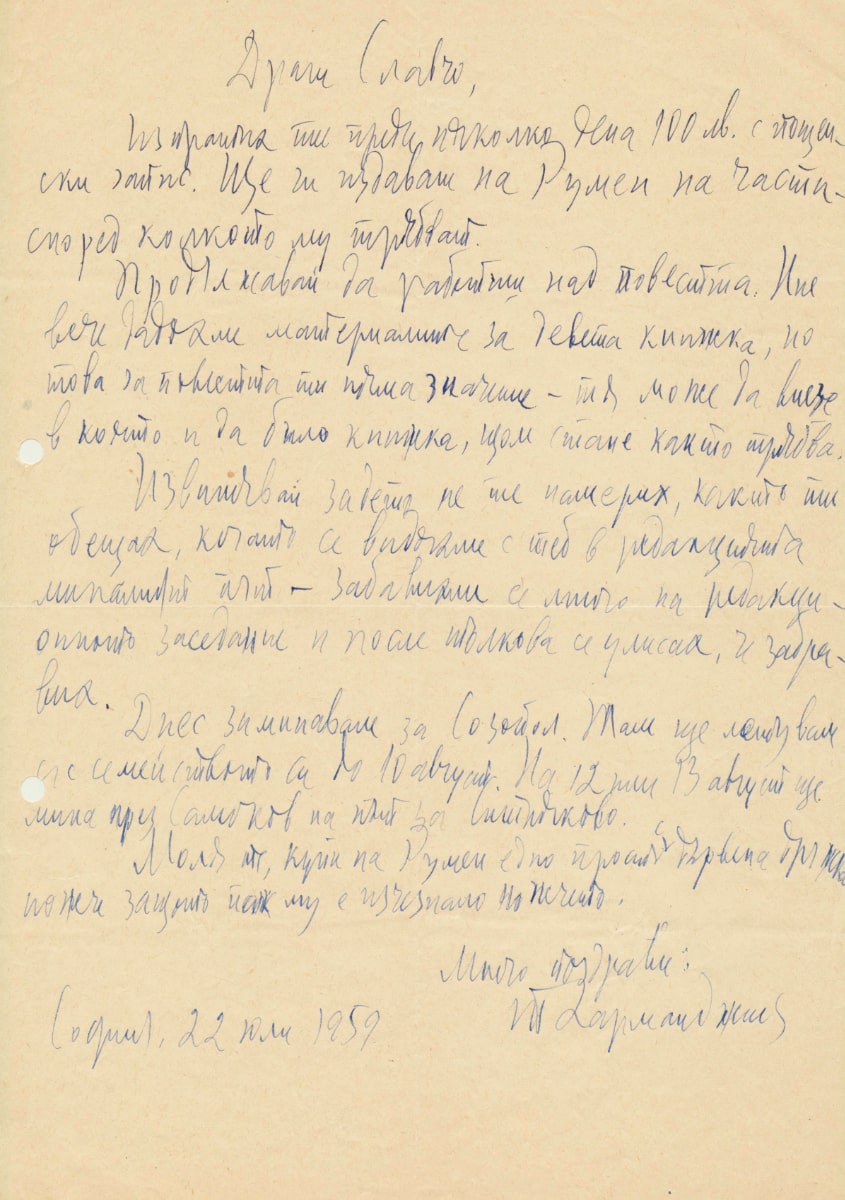 Драги Славчо,
Изпратих ти преди няколко дена 100 лв. с пощен-
ски запис. Ще ги издаваш на Румен на части-
според колкото му трябват.
Продължавай да работиш над повестта. Ние
вече дадохме материалите за девета книжка, но
това за повестта ти няма значение – тя може да влезе
в която и да било книжка, щом стане както трябва.
Извинявай задето не те намерих, както ти
обещах, когато се видяхме с теб в редакцията
миналият път – забавихме се много на редакци-
онното заседание и после толкова се улисах, че забра-
вих.
Днес заминавам за Созопол. Там ще летувам
със семейството си до 10 август. На 12 или 13 август ще
мина през Самоков на път за Ситняково.
Моля те, купи на Румен едно просто с дървена дръжка
ножче защото пак му е изчезнало ножчето.
Много поздрави:
Т Харманджиев
София, 22 юли 1959